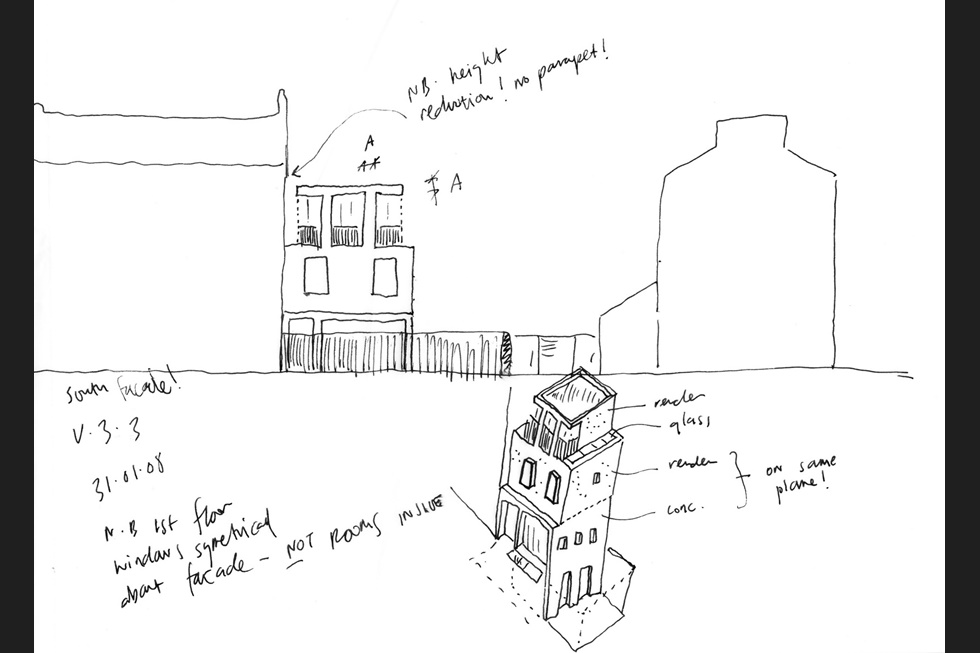 NB. height
reduction! no parapet!
A
A
south facade!
V.3.3
31.01.08
N.B 1st floor
windows symetrical
about facade - NOT ROOMS INSIDE
render
glass
render
conc.
on same
plane!